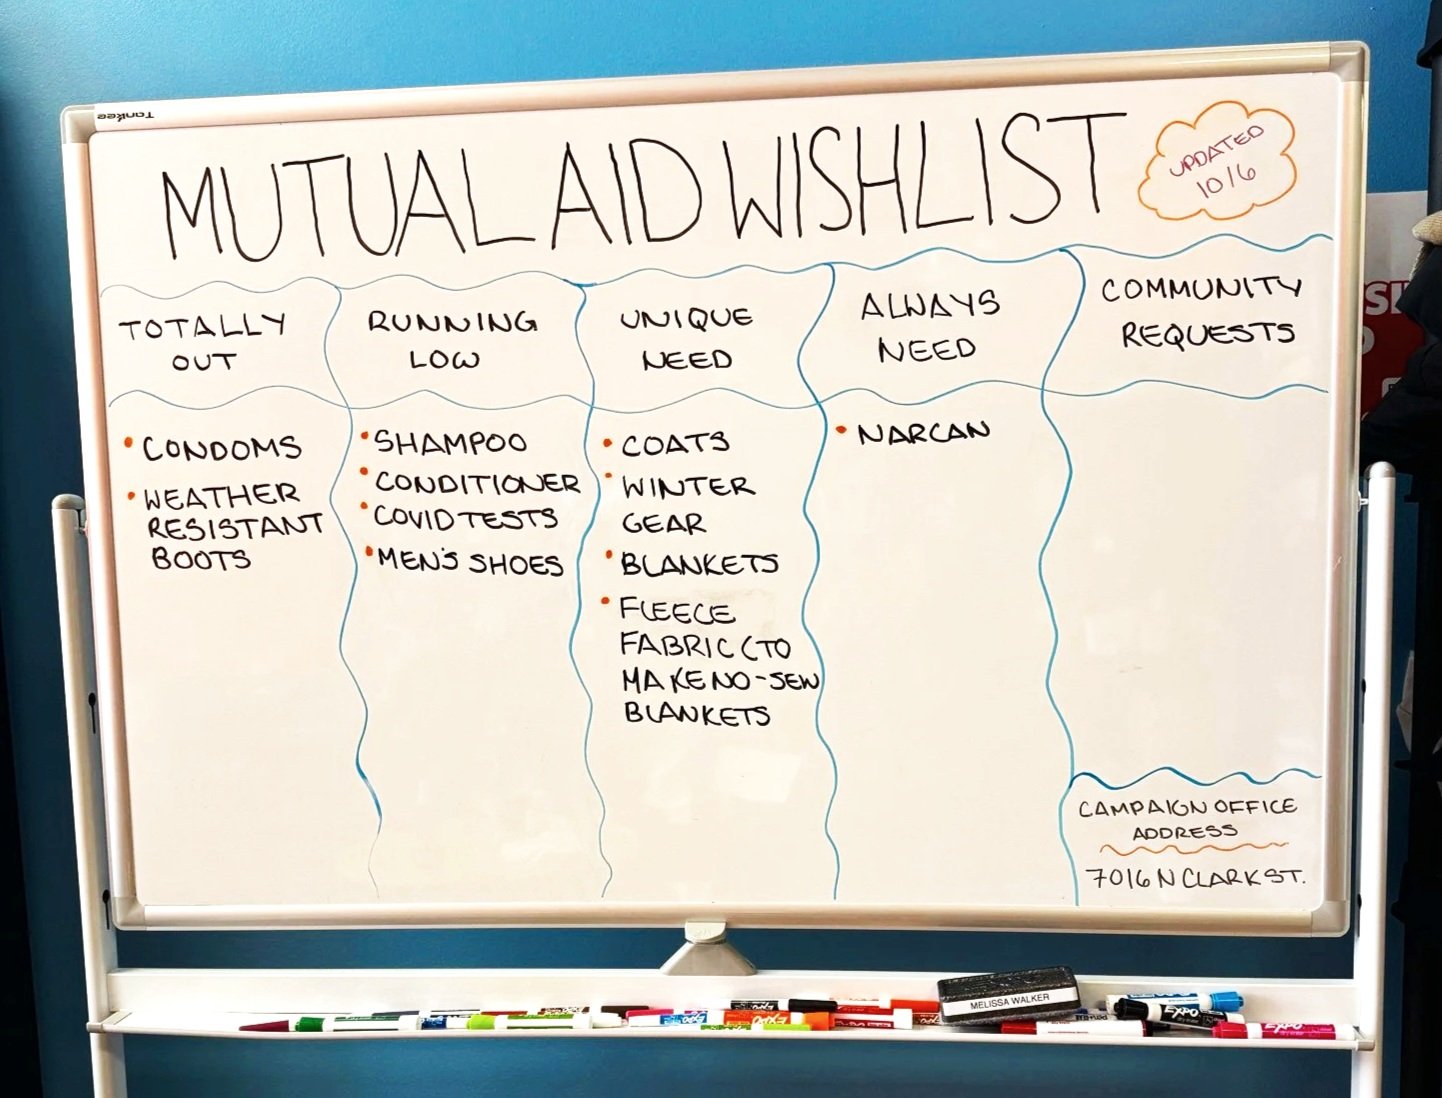 Tankee
MUTUAL AID WISHLIST
UPDATED
10/6
TOTALLY
OUT
• CONDOMS
• WEATHER
RESISTANT
BOOTS
RUNNING
LOW
• SHAMPOO
• CONDITIONER
• COVID TESTS
• MEN'S SHOES
UNIQUE
NEED
• COATS
• WINTER
GEAR
• BLANKETS
• FLEECE
FABRIC (TO
MAKE NO-SEW
BLANKETS
ALWAYS
NEED
• NARCAN
COMMUNITY
REQUESTS
CAMPAIGN OFFICE
ADDRESS
7016 N CLARK ST.
MELISSA WALKER
EXPO
EXPO
EXPO
EXPO